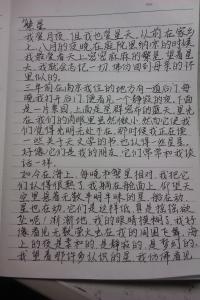 繁星
我爱月夜,但我也爱星天。从前在家乡
七、八月的夜晚在庭院里纳凉的时候,
我最爱看天上密密麻麻的繁星。望着星
天,我就会忘记一切,仿佛回到了母亲的怀
里似的。
三年前在南京我住的地方有一道后门,每
晚我打开后门,便看见一个静寂的夜。下面
是一片菜园,上面是星群密布的蓝天。星光
在我们的肉眼里虽然微小,然而它使我
们觉得光明无处不在。那时候我正在读
一些关于天文学的书,也认得一些星星,
好像它们就是我的朋友,它们常常在和我谈
话一样。
如今在海上,每晚和繁星相对,我把它
们认得很熟了。我躺在舱面上,仰望天
空里悬着无数半明半昧的星。船在动,
星也在动,它们是这样低,真是摇摇欲
坠呢!渐渐地,我的眼睛模糊了,我好
像看见无数萤火虫在我的周围飞舞。海
上的夜是柔和的,是静寂的,是梦幻的。
我望着那许多认识的星,我仿佛看见